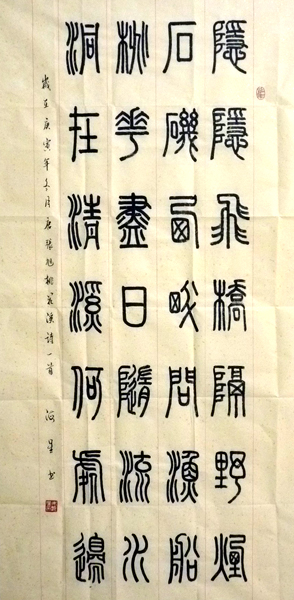 隱隱飛橋隔野煙
石磯西畔問漁船
桃花盡日隨流水
洞在清溪何處邊
庚寅年月唐張旭桃花溪詩一首
星书